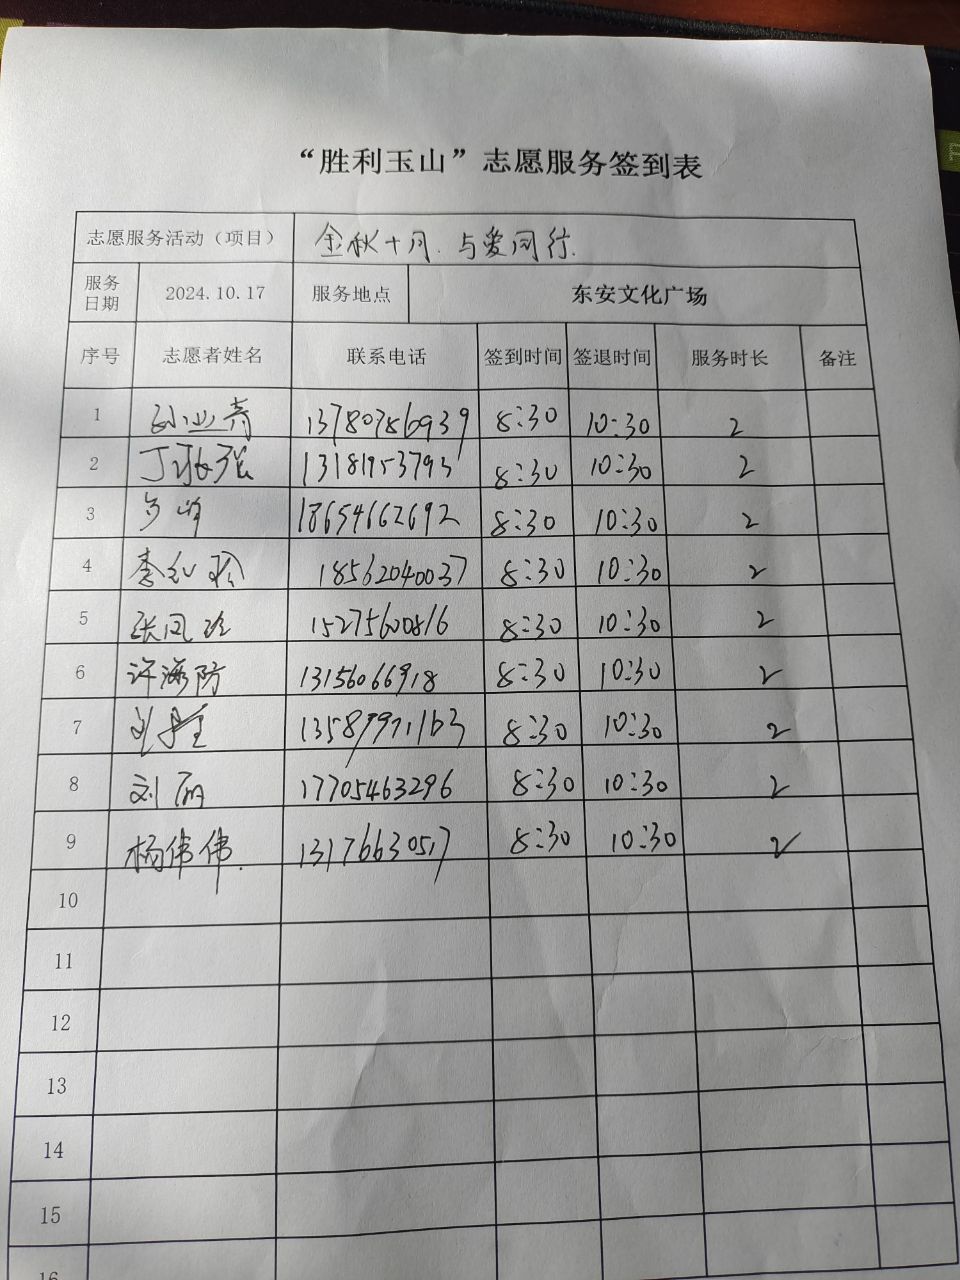 “胜利玉山”志愿服务签到表
志愿服务活动（项目） 金秋十月.与爱同行.
服务日期 2024.10.17 服务地点 东安文化广场
序号 志愿者姓名 联系电话 签到时间 签退时间 服务时长 备注
1 13780786939 8:30 10:30 2
2 丁秋强 13181953793 8:30 10:30 2
3 18654662692 8:30 10:30 2
4 李红玲 18562040037 8:30 10:30 2
5 张凤玲 15275600816 8:30 10:30 2
6 许海防 13156066918 8:30 10:30 2
7 8:30 10:30 2
8 刘丽 17705463296 8:30 10:30 2
9 杨伟伟. 13176630517 8:30 10:30 2
10
11
12
13
14
15
16